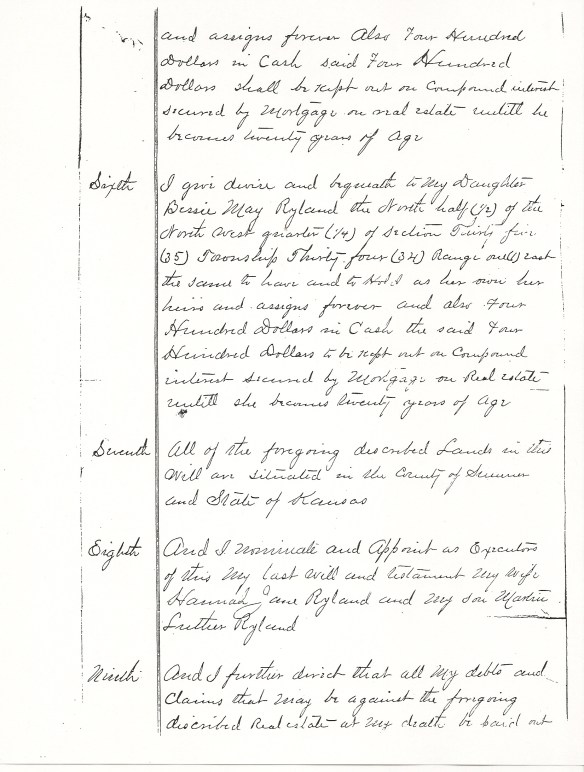 and assigns forever Also Four Hundred
Dollars in Cash said Four Hundred
Dollars shall be kept out on Compound interest
secured by Mortgage on real estate untill he
becomes twenty years of Age
Sixth I give devise and bequeath to My Daughter
Bessie May Ryland the North half (1/2) of the
North West quarter (1/4) of Section Thirty five
(35) Township Thirty four (34) Range one (1) east
the same to have and to Hold as her own her
heirs and assigns forever and also Four
Hundred Dollars in Cash the said Four
Hundred Dollars to be kept out on Compound
interest secured by Mortgage on Real estate
untill she becomes twenty years of Age
Seventh All of the foregoing described Lands in this
Will are situated in the County of Sumner
and State of Kansas
Eighth And I nominate and Appoint as Executors
of this My last Will and testament My Wife
Hannah Jane Ryland and My son Martin
Luther Ryland
Nineth And I further direct that all My debts and
Claims that May be against the foregoing
described Real estate at My death be paid out